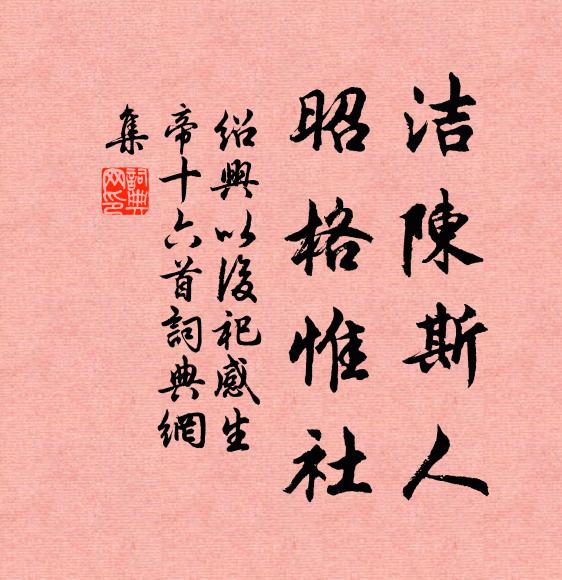 洁陳斯人
昭格惟社
紹興以後祀感生
帝十六首詞典網
集
詞典
网印